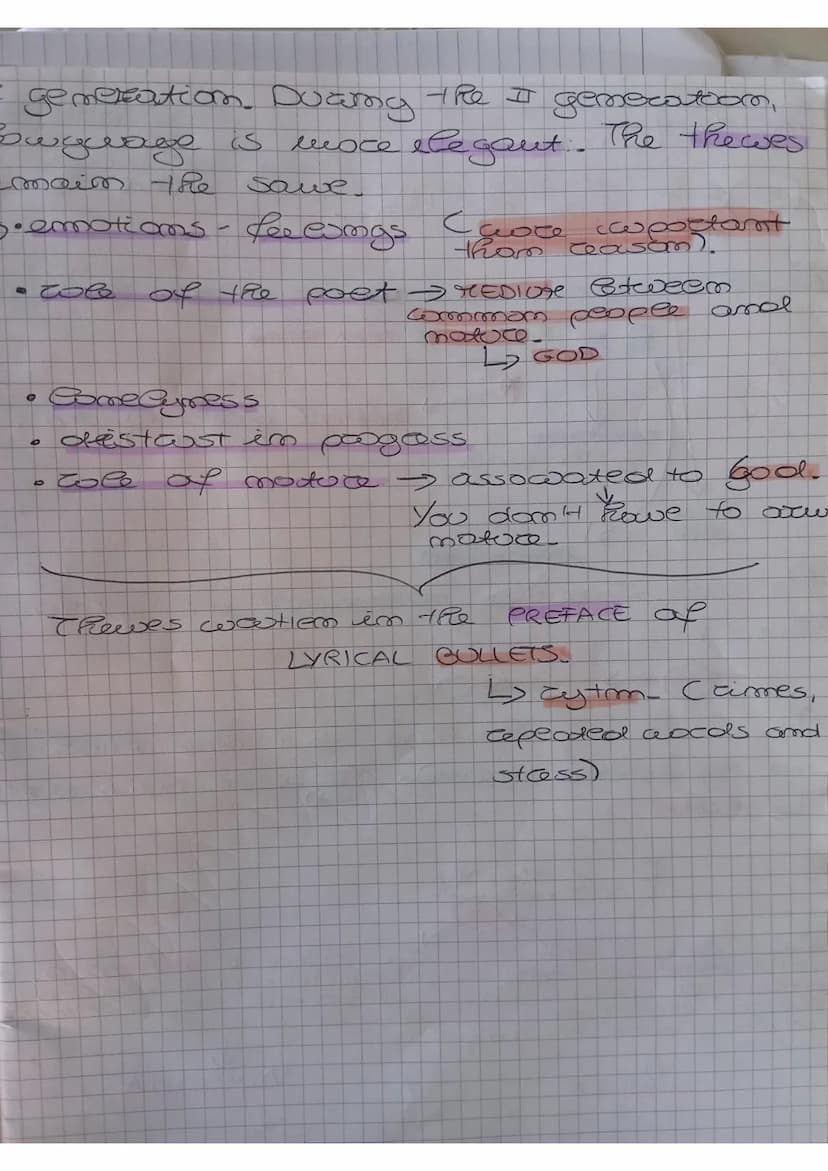 generation. During the II generation,
language is more elegant. The themes
main the same.
• emotions - feelings (more important
than reason).
• role of the poet → MEDIATE between
common people and
nature.
↳ GOD
• Lonelyness
• distrust in progress
• role of nature → associated to God.
You don't have to
nature.
Themes written in the PREFACE of
LYRICAL BALLETS.
↳ rytm. (rimes,
repeated words and
stress)